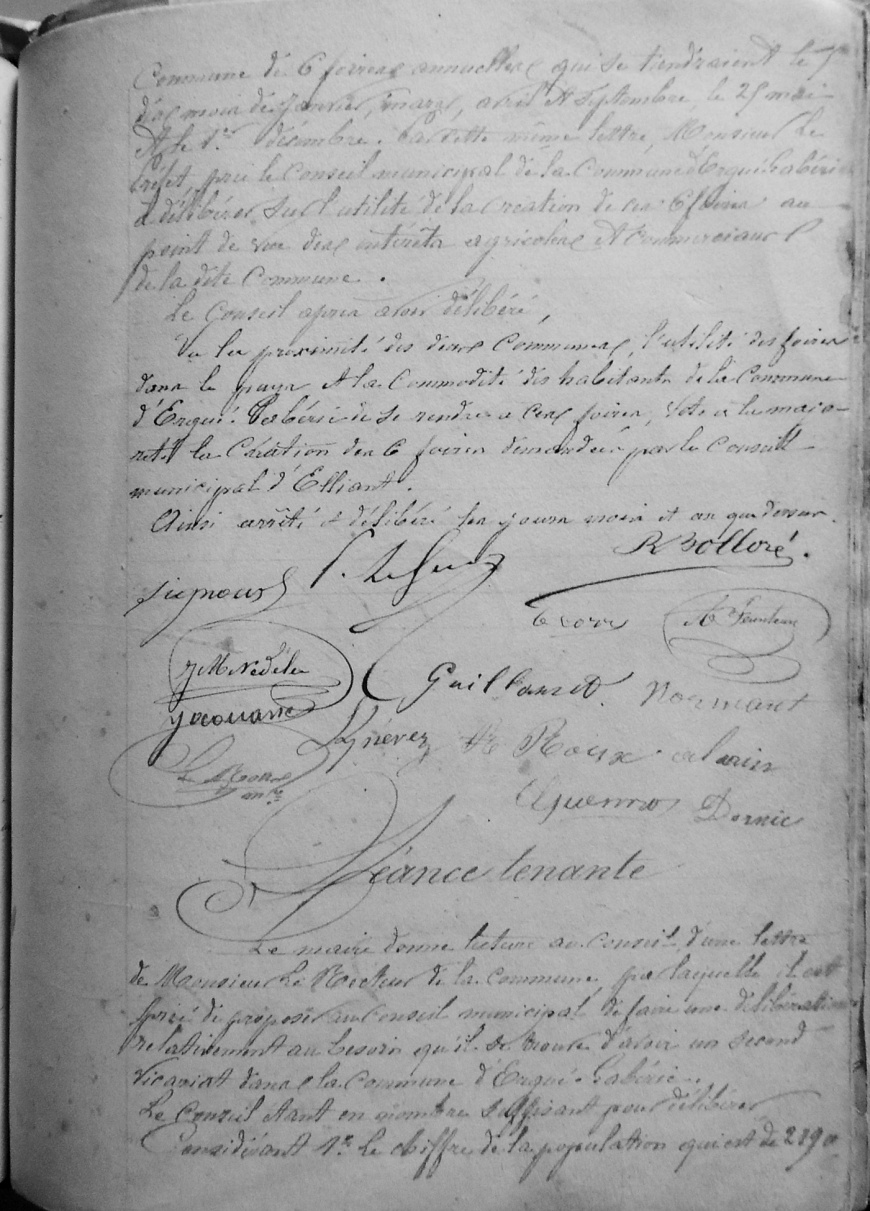 Commune de 6 foires annuelles qui se tiendraient le
des mois de Janvier, mars, avril et Septembre, le 25 mai
et le 1er décembre. Par cette même lettre, Monsieur Le
Préfet prie le Conseil municipal de la Commune d'Ergué-Gabéric
à délibérer sur l'utilité de la création de ces 6 foires au
point de vue des intérêts agricoles et commerciaux
de la dite Commune.
Le Conseil après avoir délibéré,
Vu la proximité des deux Communes, l'utilité des foires
dans le pays et la Commodité des habitants de la Commune
d'Ergué-Gabéric de se rendre à ces foires, Vote à la majo-
rité la Création des 6 foires demandées par le Conseil
municipal d'Elliant.
Ainsi arrêté et délibéré les jours mois et an que dessus.
R Bolloré.
Signour
J M Nédélec
Guillamet. Normant
Le Roux
Guennou
Séance tenante
Le maire donne lecture au Conseil d'une lettre
de Monsieur Le Recteur de la Commune, par laquelle il est
prié de proposer au Conseil municipal de faire une délibération
relativement au besoin qu'il se trouve d'avoir un second
vicariat dans la Commune d'Ergué-Gabéric.
Le Conseil étant en nombre suffisant pour délibérer
Considérant 1er Le chiffre de la population qui est de